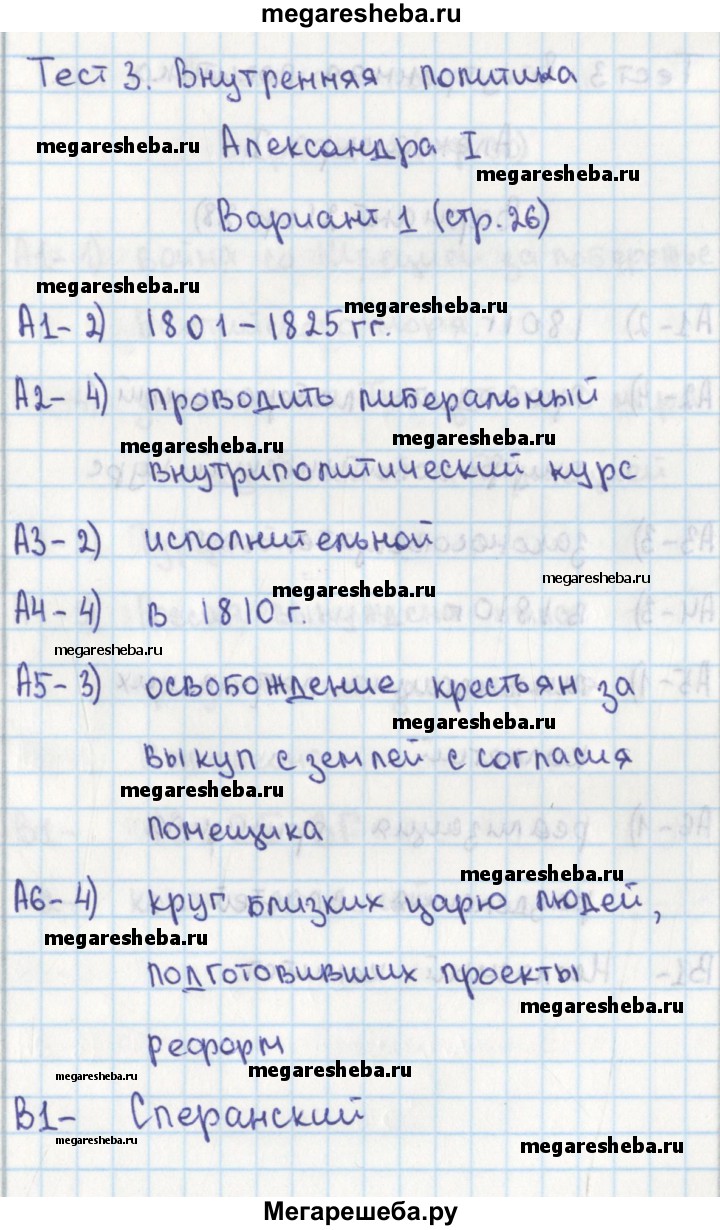 megaresheba.ru
Тест 3. Внутренняя политика
megaresheba.ru
Александра I
megaresheba.ru
Вариант 1 (стр. 26)
megaresheba.ru
megaresheba.ru
А1- 2) 1801-1825 гг.
А2- 4) проводить либеральный
megaresheba.ru
megaresheba.ru
внутриполитический курс
А3- 2) исполнительной
megaresheba.ru
megaresheba.ru
А4- 4) в 1810 г.
megaresheba.ru
А5- 3) освобождение крестьян за
megaresheba.ru
выкуп с землей с согласия
megaresheba.ru
помещика
megaresheba.ru
А6- 4) круг близких царю людей,
megaresheba.ru
подготовивших проекты
megaresheba.ru
реформ
megaresheba.ru
megaresheba.ru
В1- Сперанский
megaresheba.ru
megaresheba.ru
Мегарешеба.ру